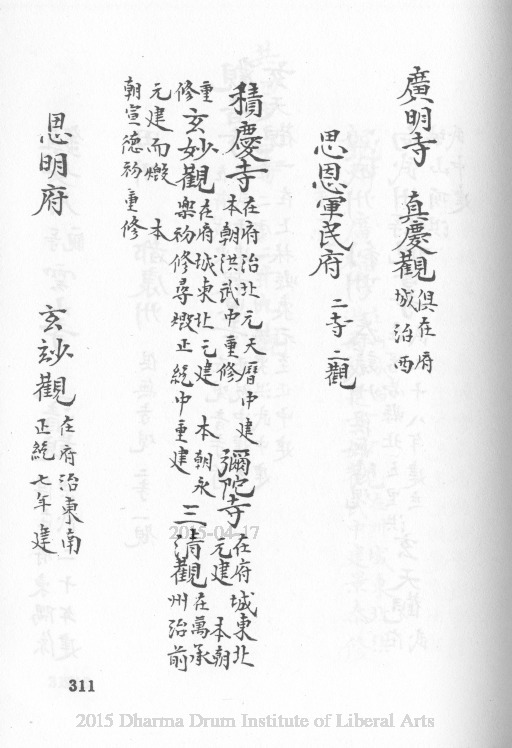 廣明寺 真慶觀 俱在府城治西
思恩軍民府 二寺二觀
積慶寺 在府治北元天曆中建 本朝洪武中重修 彌陀寺 在府城東北元建 本朝
重修 玄妙觀 在府城東北元建 本朝永樂初修尋燬正統中重建 三清觀 在萬承州治前
元建而燬 本
朝宣德初重修
思明府 玄妙觀 在府治東南正統七年建
2015-04-17
311
2015 Dharma Drum Institute of Liberal Arts